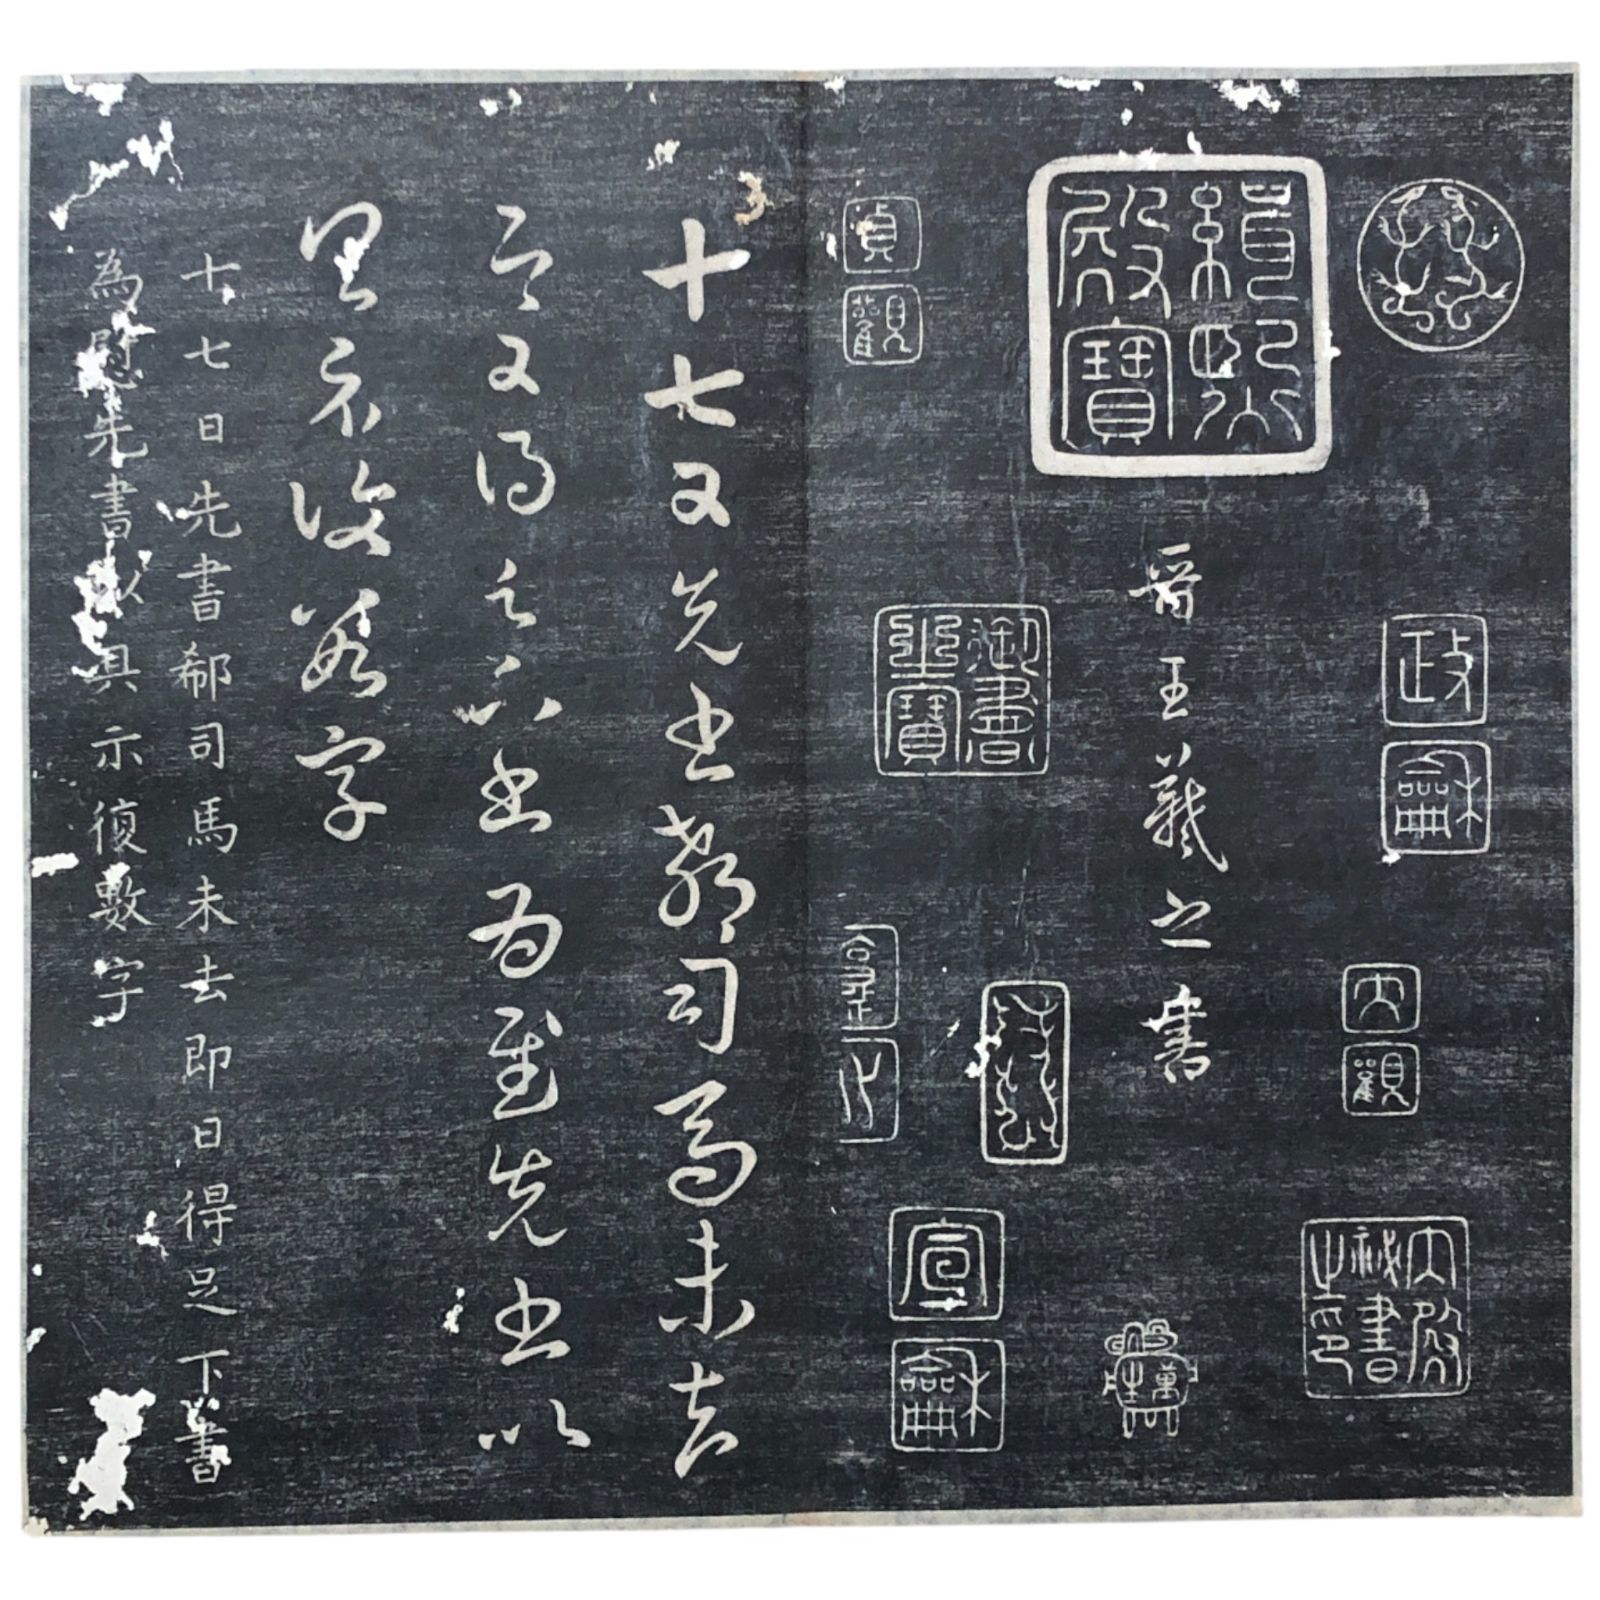 緝熙殿寶
政龢
大觀
內殿祕書之印
晉王羲之書
貞觀
宣龢
十七日先書郗司馬未去
即日得足下書為慰先書以
具示復數字
十七日先書郗司馬未去即日得足下書
為慰先書以具示復數字